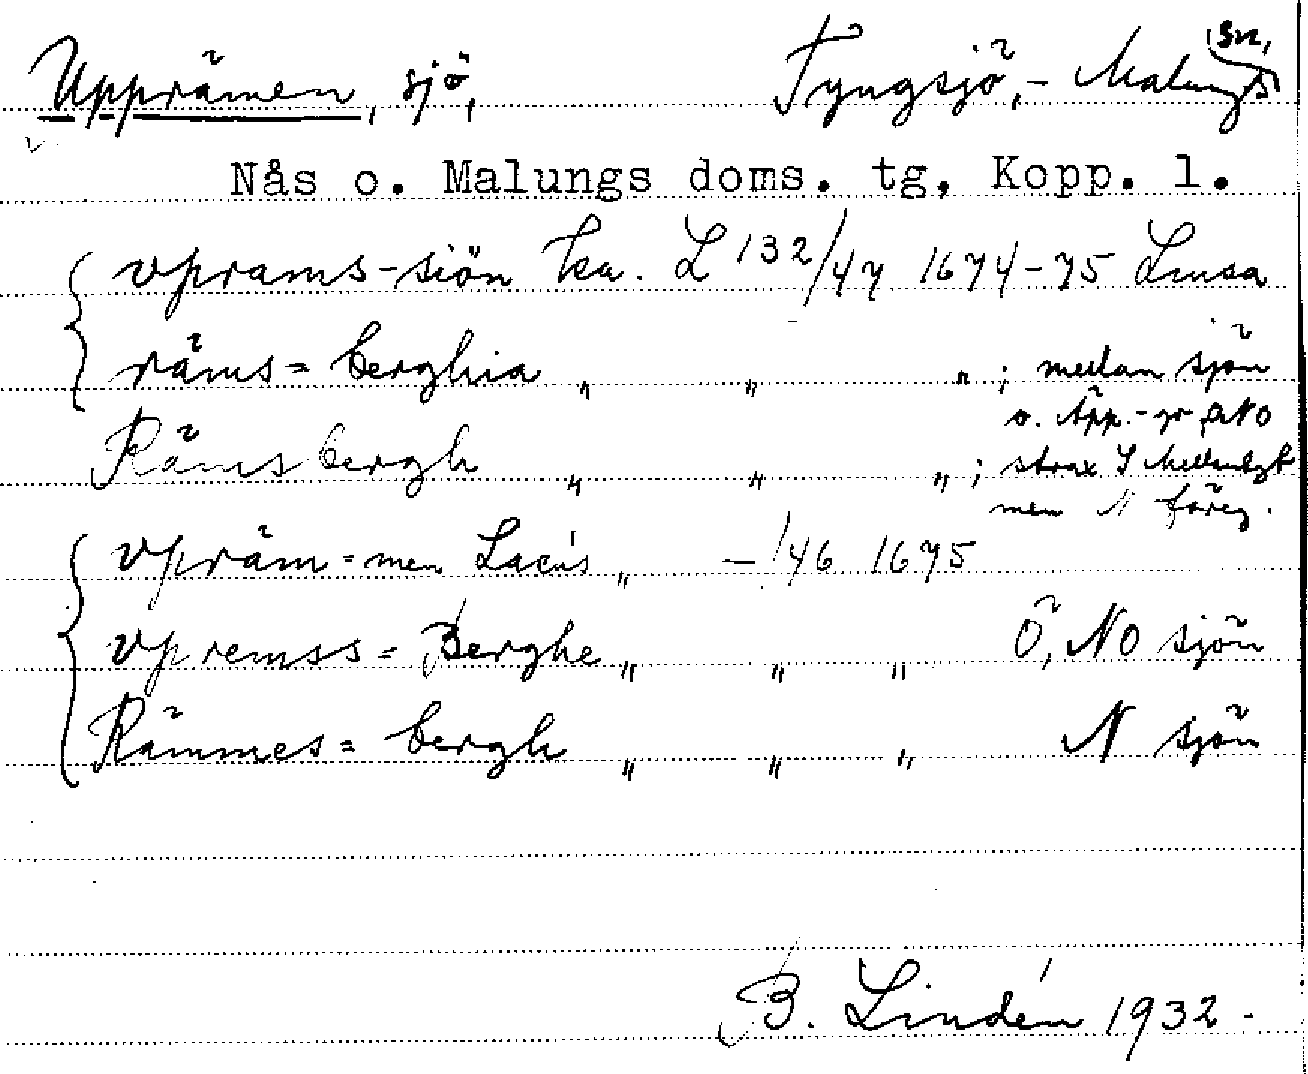 Upprämen, sjö, Tyngsjö, - Malungs sn,
Nås o. Malungs doms. tg, Kopp. l.
vprams-siön ka. L 132/47 1674-75 Limsa
räms= berghia " " " ; mellan sjön
o. Äpp.- ONO
Rämsbergh " " " ; strax
men N föreg.
vpräm=men Lacus " - /46 1675
vpremss= Berghe " " " Ö, NO sjön
Rämmes= bergh " " " N sjön
B. Lindén 1932 -